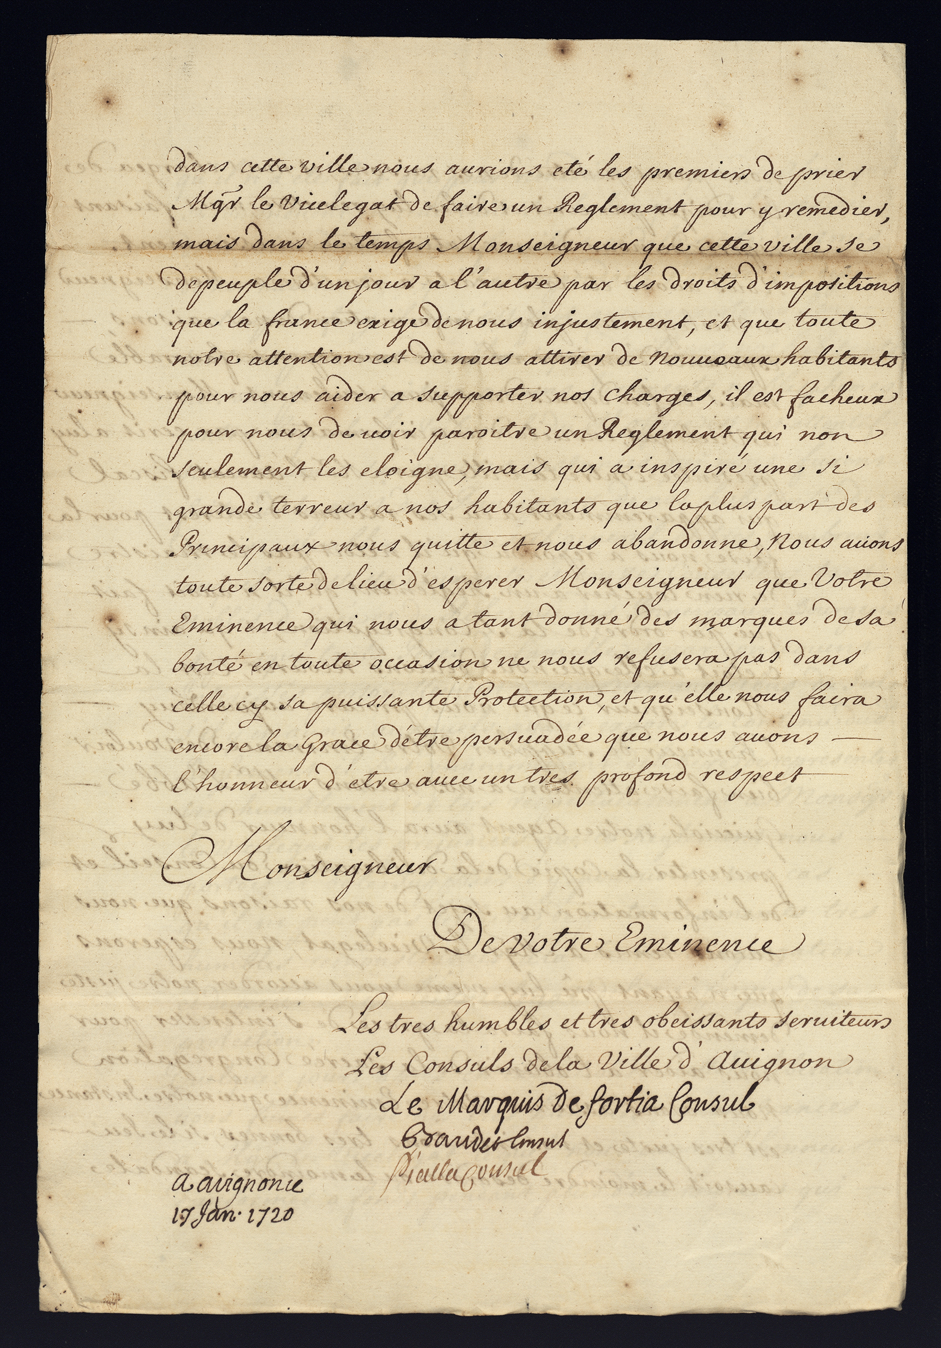 dans cette ville nous aurions eté les premiers de prier
Mgr le Vicelegat de faire un Reglement pour y remedier,
mais dans le temps Monseigneur que cette ville se
depeuple d'un jour a l'autre par les droits d'impositions
que la france exige de nous injustement, et que toute
notre attention est de nous attirer de nouveaux habitants
pour nous aider a supporter nos charges, il est facheux
pour nous de voir paroitre un Reglement qui non
seulement les eloigne, mais qui a inspiré une si
grande terreur a nos habitants que la plus part des
Principaux nous quitte et nous abandonne, Nous auons
toute sorte de lieu d'esperer Monseigneur que Votre
Eminence qui nous a tant donné des marques de sa
bonté en toute occasion ne nous refusera pas dans
celle cy sa puissante Protection, et qu'elle nous faira
encore la Grace d'étre persuadée que nous auons —
l'honneur d'etre auec un tres profond respect
Monseigneur
De Votre Eminence
Les tres humbles et tres obeissants seruiteurs
Les Consuls de la Ville d'Auignon
Le Marquis De fortia Consul
Consul
Pialla Consul
A avignon ce
17 Jan. 1720